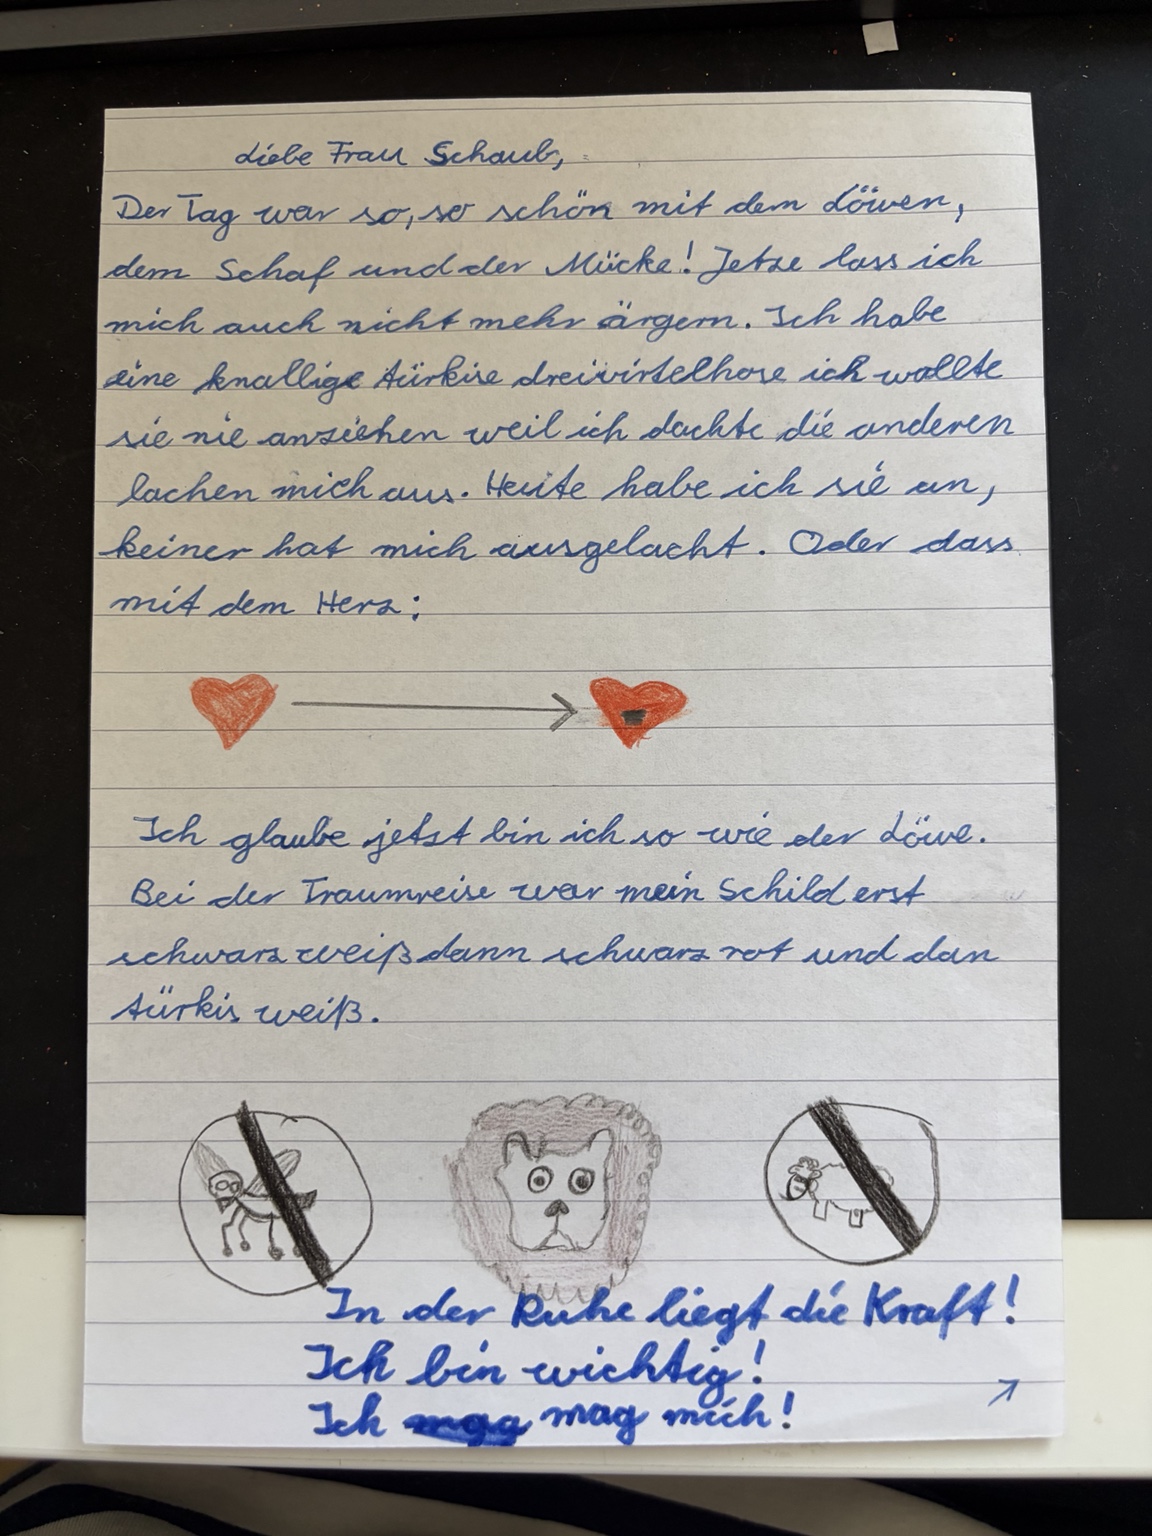 Liebe Frau Schaub,
Der Tag war so, so schön mit dem Löwen,
dem Schaf und der Mücke! Jetze lass ich
mich auch nicht mehr ärgern. Ich habe
eine knallige türkise dreivirtelhose ich wollte
sie nie anziehen weil ich dachte die anderen
lachen mich aus. Heute habe ich sie an,
keiner hat mich ausgelacht. Oder dass
mit dem Herz:
Ich glaube jetzt bin ich so wie der Löwe.
Bei der Traumreise war mein Schild erst
schwarz weiß dann schwarz rot und dan
türkis weiß.
In der Ruhe liegt die Kraft!
Ich bin wichtig!
Ich mag mich!